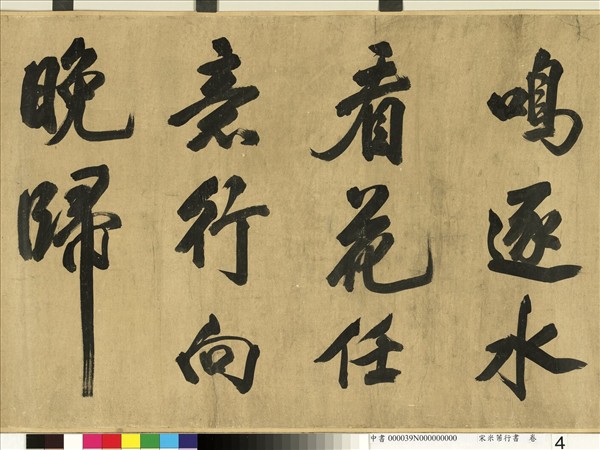 鳴逐水
看花任
意行向
晚歸
中書 000039N000000000 宋米芾行書 卷 4